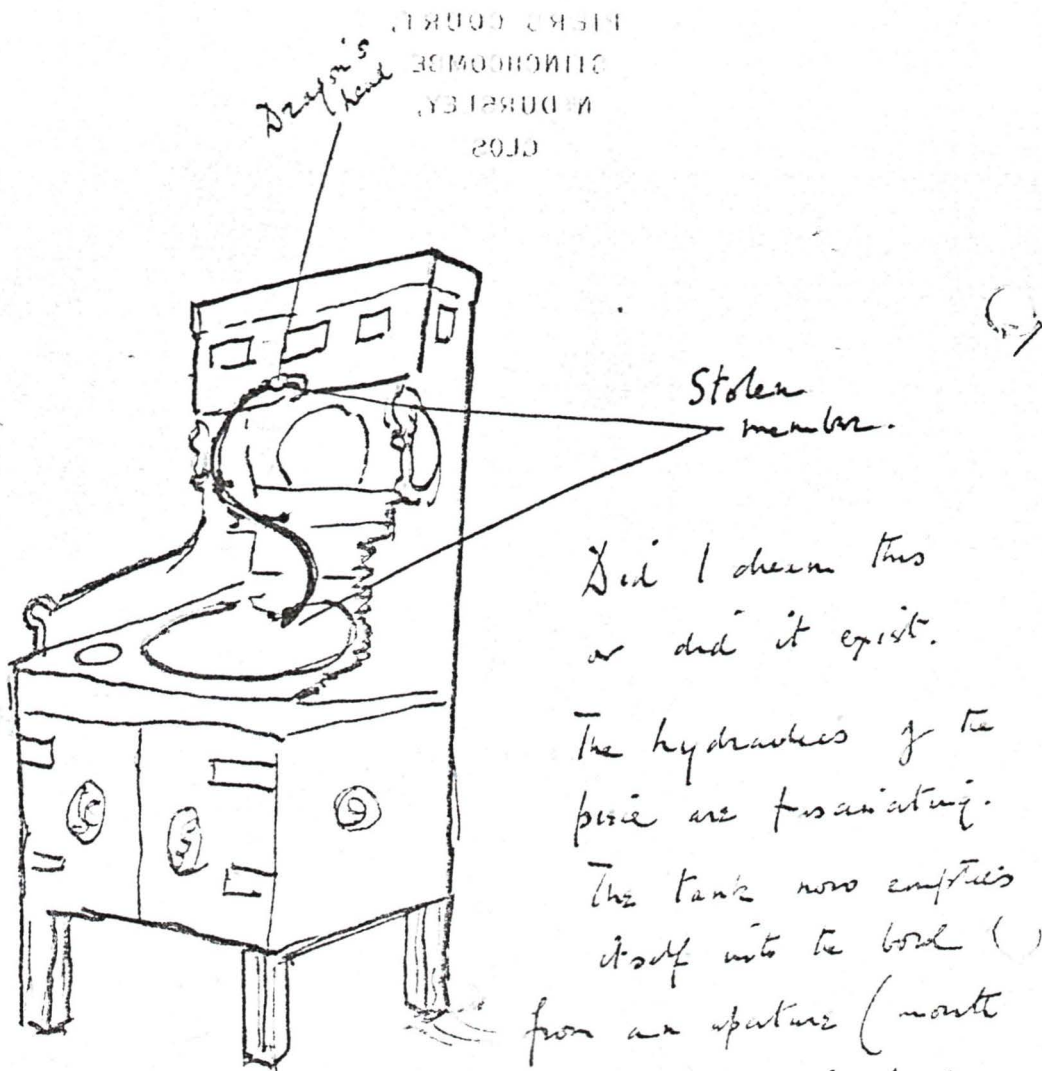 PIERS COURT,
STINCHCOMBE
Nr DURSLEY,
GLOS
Dragon's
head
Stolen
member.
Did I dream this
or did it exist.
The hydraulics of the
piece are fascinating.
The tank now empties
itself into the bowl
from an aperture (mouth